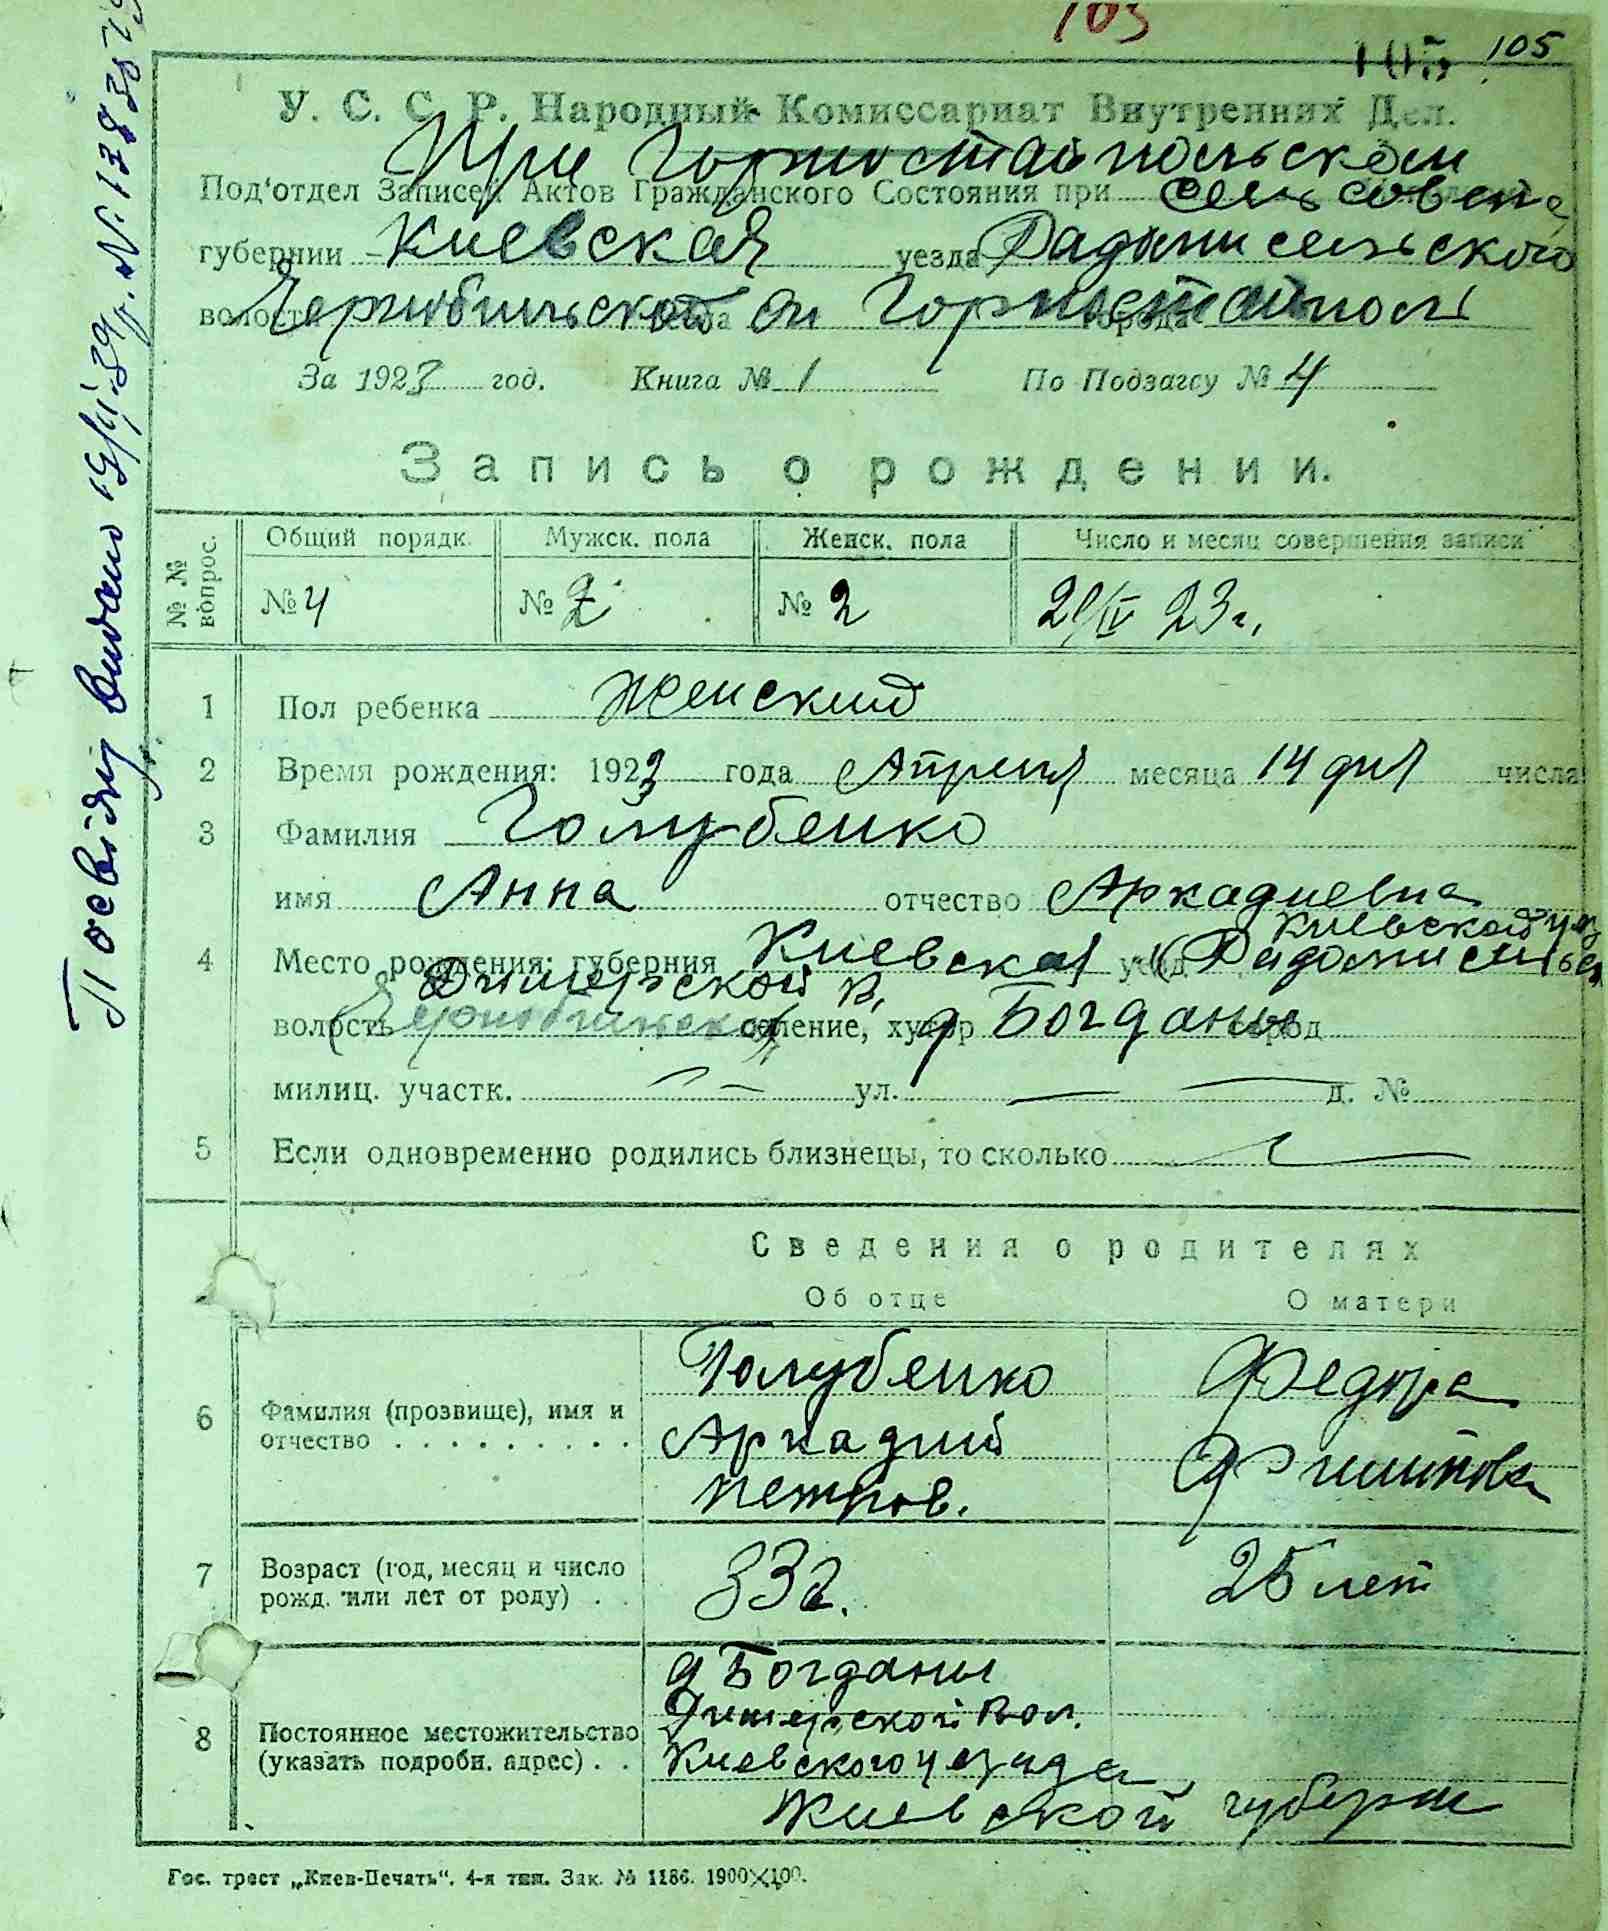 103
105 105
У. С. С. Р. Народный Комиссариат Внутренних Дел.
При Горностайпольском
Под‘отдел Записей Актов Гражданского Состояния при сельсовете
губернии Киевская уезда Радомисельского
волости Чернобильской Горностайполь города
За 1923 год. Книга № 1 По Подзагсу № 4
Запись о рождении.
№ № вопрос. Общий порядк. Мужск. пола Женск. пола Число и месяц совершения записи
№ 4 № 2 № 2 2/IV 23 г.
1 Пол ребенка женский
2 Время рождения: 1923 года Апреля месяца 14 дня числа
3 Фамилия Голубенко
имя Анна отчество Аркадиевна
Киевской уез
4 Место рождения: губерния Киевская уезд Радомисельск
Димерской в.
волость Чернобильской селение, хутор д Богданы город
милиц. участк. — ул. — д. №
5 Если одновременно родились близнецы, то сколько —
Сведения о родителях
Об отце О матери
6 Фамилия (прозвище), имя и отчество . . . . . . . . . Голубенко Аркадий Петров. Федора Филипова
7 Возраст (год, месяц и число рожд. или лет от роду) . . 33 г. 25 лет
8 Постоянное местожительство (указать подробн. адрес) . . д Богданы Димерской вол. Киевского уезда Киевской губерни
Гос. трест „Киев-Печать“. 4-я тип. Зак. № 1186. 1900×100.
Посвідку видано 19/II.39 р. №